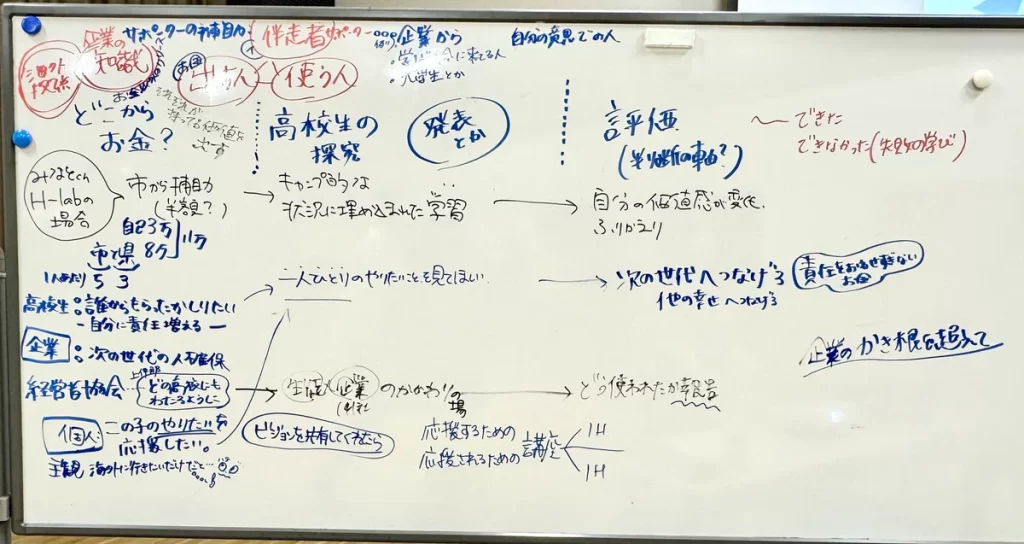 企業の知恵も
サポーターの補助力
伴走者サポーター
企業から
自分の意思での人
学びに来てる人
大学生とか
出す人と使う人
お金
どこからお金?
それぞれが
持ってる価値を
出す
高校生の
探究
発表
とか
評価
(判断の軸?)
できた
できなかった(失敗の学び)
みなとch
H-labの
場合
市から補助
(半額?)
キャンプ的な
状況に埋め込まれた学習
自分の価値感が変化
ふりかえり
自己3万
市と県 8万
11万
1人あたり 5 3
一人ひとりのやりたいことを見てほしい
次の世代へつなげる
他の幸せへつなげる
責任をおわせすぎない
お金
高校生:誰からもらったかしりたい
-自分に責任増える-
企業:次の世代の人材確保
企業のかき根を超えて
経営者協会
どの高校にも
わたるように
生徒と企業のかかわりの場
1社
どう使われたか報告
個人:この子のやりたいを
応援したい。
ビジョンを共有してくれたら
応援するための
応援されるための
講座
1H
1H
主観 海外に行きたいだけだと…